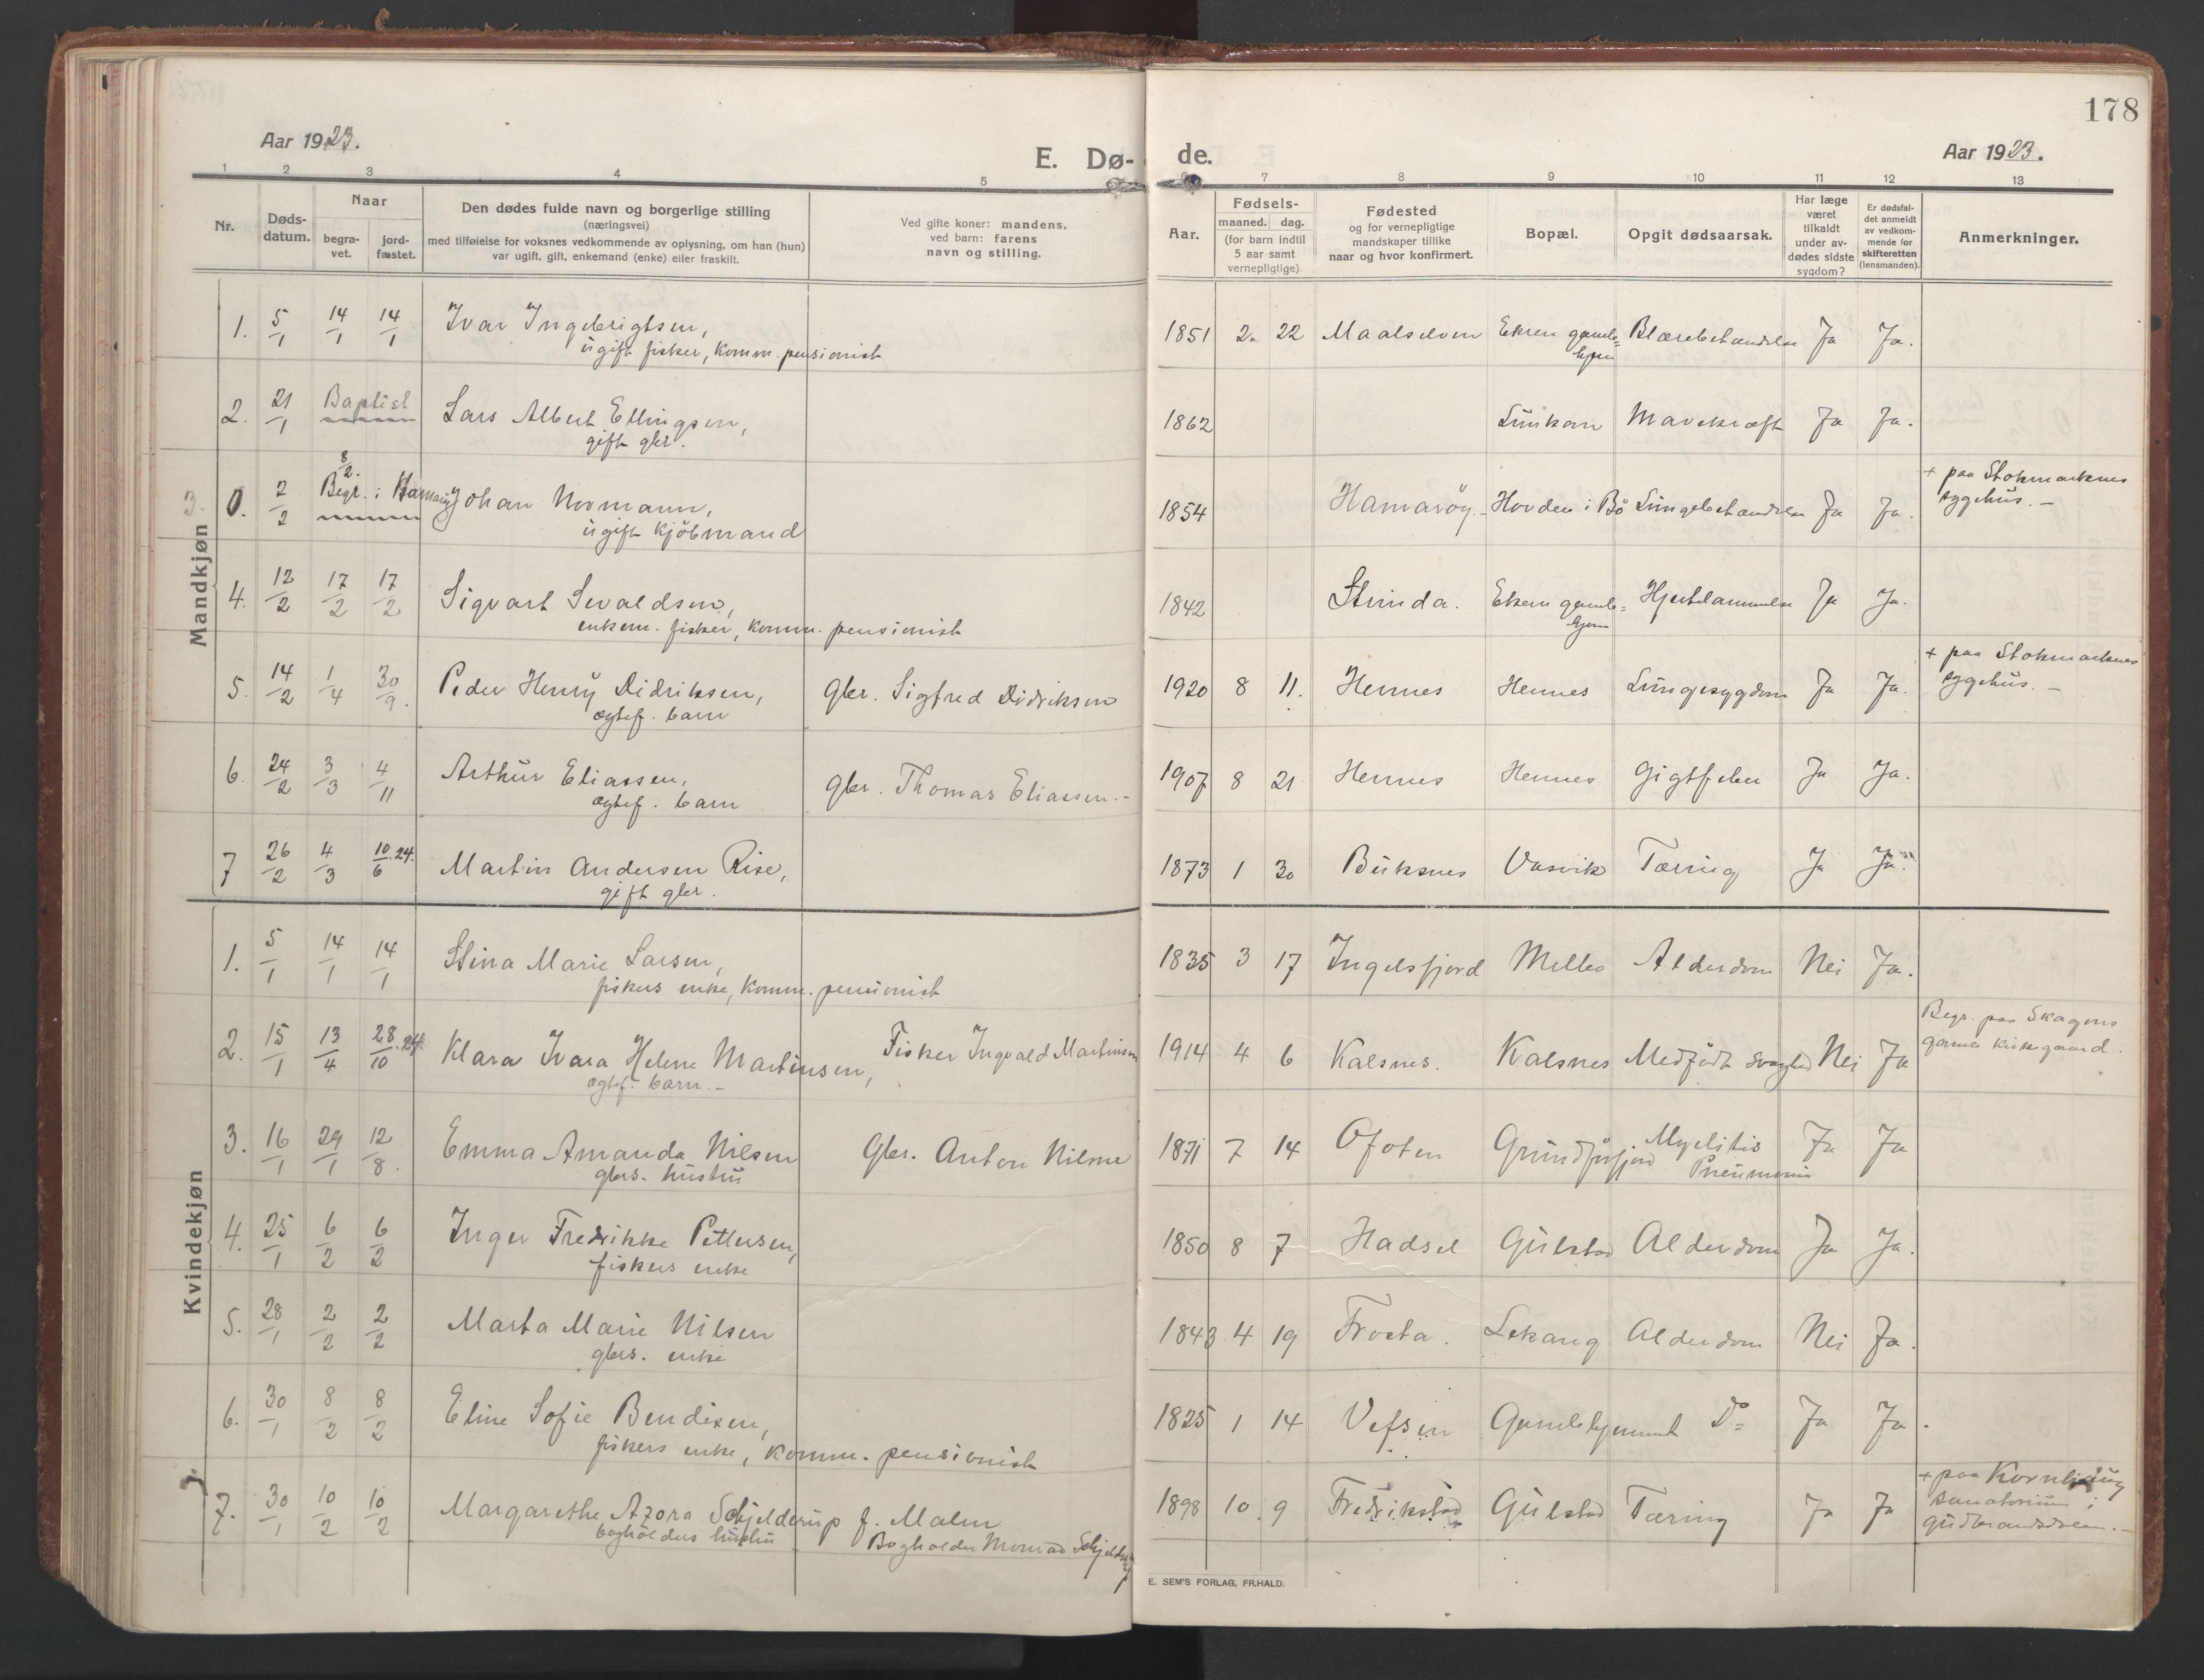 178
Aar 1923.
E. Dø-
de.
Aar 1923.
1 2 3 4 5 6 7 8 9 10 11 12 13
Nr.
Døds-
datum.
Naar
begra-
vet.
jord-
fæstet.
Den dødes fulde navn og borgerlige stilling
(næringsvei)
med tilføielse for voksnes vedkommende av oplysning, om han (hun)
var ugift, gift, enkemand (enke) eller fraskilt.
Ved gifte koner: mandens,
ved barn: farens
navn og stilling.
Aar.
Fødsels-
maaned. dag.
(for barn indtil
5 aar samt
vernepligtige)
Fødested
og for vernepligtige
mandskaper tillike
naar og hvor konfirmert.
Bopæl.
Opgit dødsaarsak.
Har læge
været
tilkaldt
under av-
dødes sidste
sygdom?
Er dødsfal-
det anmeldt
av vedkom-
mende for
skifteretten
(lensmanden).
Anmerkninger.
Mandkjøn
1. 5/1 14/1 14/1 Ivar Ingebrigtsen, 1851 2 22 Maalselven Ekren gamle= Blærebetændelse Ja Ja.
ugift fisker, komm. pensionist hjem
2. 21/1 Baptist Lars Albert Ellingsen, 1862 Lunkan Mavekræft Ja Ja.
gift gbr.
8/2.
3. 0. 2/2 Begr. i Hamarøy Johan Normann, 1854 Hamarøy. Hovden i Bö Lungebetændelse Ja Ja. + paa Stokmarknes
ugift kjöbmand sygehus. –
4. 12/2 17/2 17/2 Sigvart Sevaldsen, 1842 Strinda. Ekren gamle= Hjertelammelse Ja Ja.
enkem. fisker, komm. pensionist hjem
5. 14/2 1/4 30/9. Peder Henry Didriksen, gbr. Sigfred Didriksen 1920 8 11. Hennes Hennes Lungesygdom Ja Ja. + paa Stokmarknes
ægtef. barn sygehus. –
6. 24/2 3/3 4/11 Arthur Eliassen, gbr. Thomas Eliassen. – 1907 8 21 Hennes Hennes Gigtfeber Ja Ja.
ægtef. barn
7 26/2 4/3 10/6.24. Martin Andersen Rise, 1873 1 30 Buksnes Vasvik Tæring Ja Ja.
gift gbr.
Kvindekjøn
1. 5/1 14/1 14/1 Stina Marie Larsen, 1835 3 17 Ingelsfjord Melbo Alderdom Nei Ja.
fiskers enke, komm. pensionist
2. 15/1 13/4 28/10.24. Klara Ivara Helene Martinsen, Fisker Ingvald Martinsen 1914 4 6 Kalsnes. Kalsnes Medfödt svaghed Nei Ja Begr. paa Skagens
ægtef. barn. – gamle kirkegaard.
3. 16/1 29/1 12/8. Emma Amanda Nilsen Gbr. Anton Nilsen 1871 7 14 Ofoten Grundförfjord Myelitis Ja Ja
gbrs. hustru Pneumoni
4. 25/1 6/2 6/2 Inger Fredrikke Pettersen, 1850 8 7 Hadsel Gulstad Alderdom Ja Ja.
fiskers enke
5. 28/1 2/2 2/2 Marta Marie Nilsen 1843 4 19 Frosta. Lekang Alderdom Nei Ja.
gbrs. enke
6. 30/1 8/2 8/2 Eline Sofie Bendixen, 1825 1 14 Vefsen Gamlehjemmet Do Ja Ja.
fiskers enke, komm. pensionist
7. 30/1 10/2 10/2 Margarethe Azora Schjelderup f. Malm 1898 10 9 Fredrikstad Gulstad Tæring Ja Ja + paa Kornhaug
bogholders hustru Bogholder Monrad Schjelderup sanatorium i
Gudbrandsdalen. –
E. SEM'S FORLAG, FR.HALD.